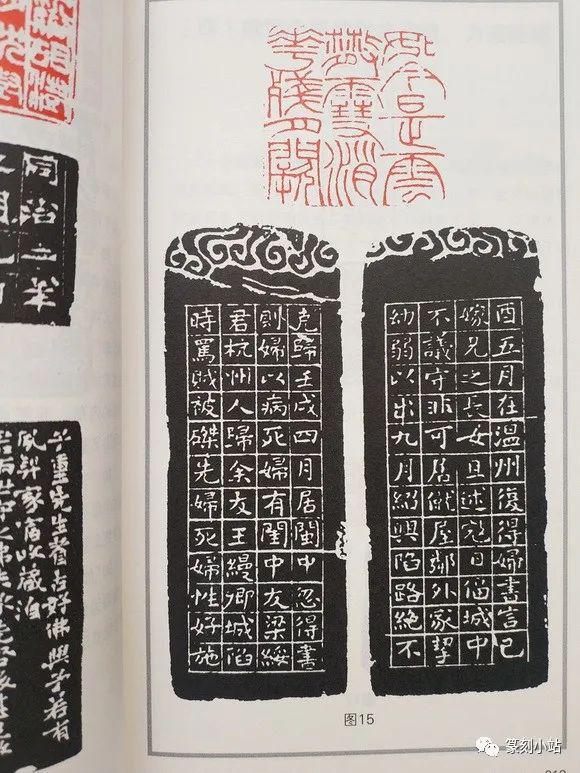 如今是雲
散雪消
華殘月闕
酉五月在溫州復得婦書言已
嫁兄之長女且述寇日偪城中
不議守非可居僦屋鄰外家挈
幼弱以出九月紹興陷路絕不
克歸壬戌四月居閩中忽得書
則婦以病死婦有閨中友梁綬
君杭州人歸余友王縵卿城陷
時罵賊被磔先婦死婦性好施
图15
同治二年
先生耆古好佛與予若有
篆刻小站